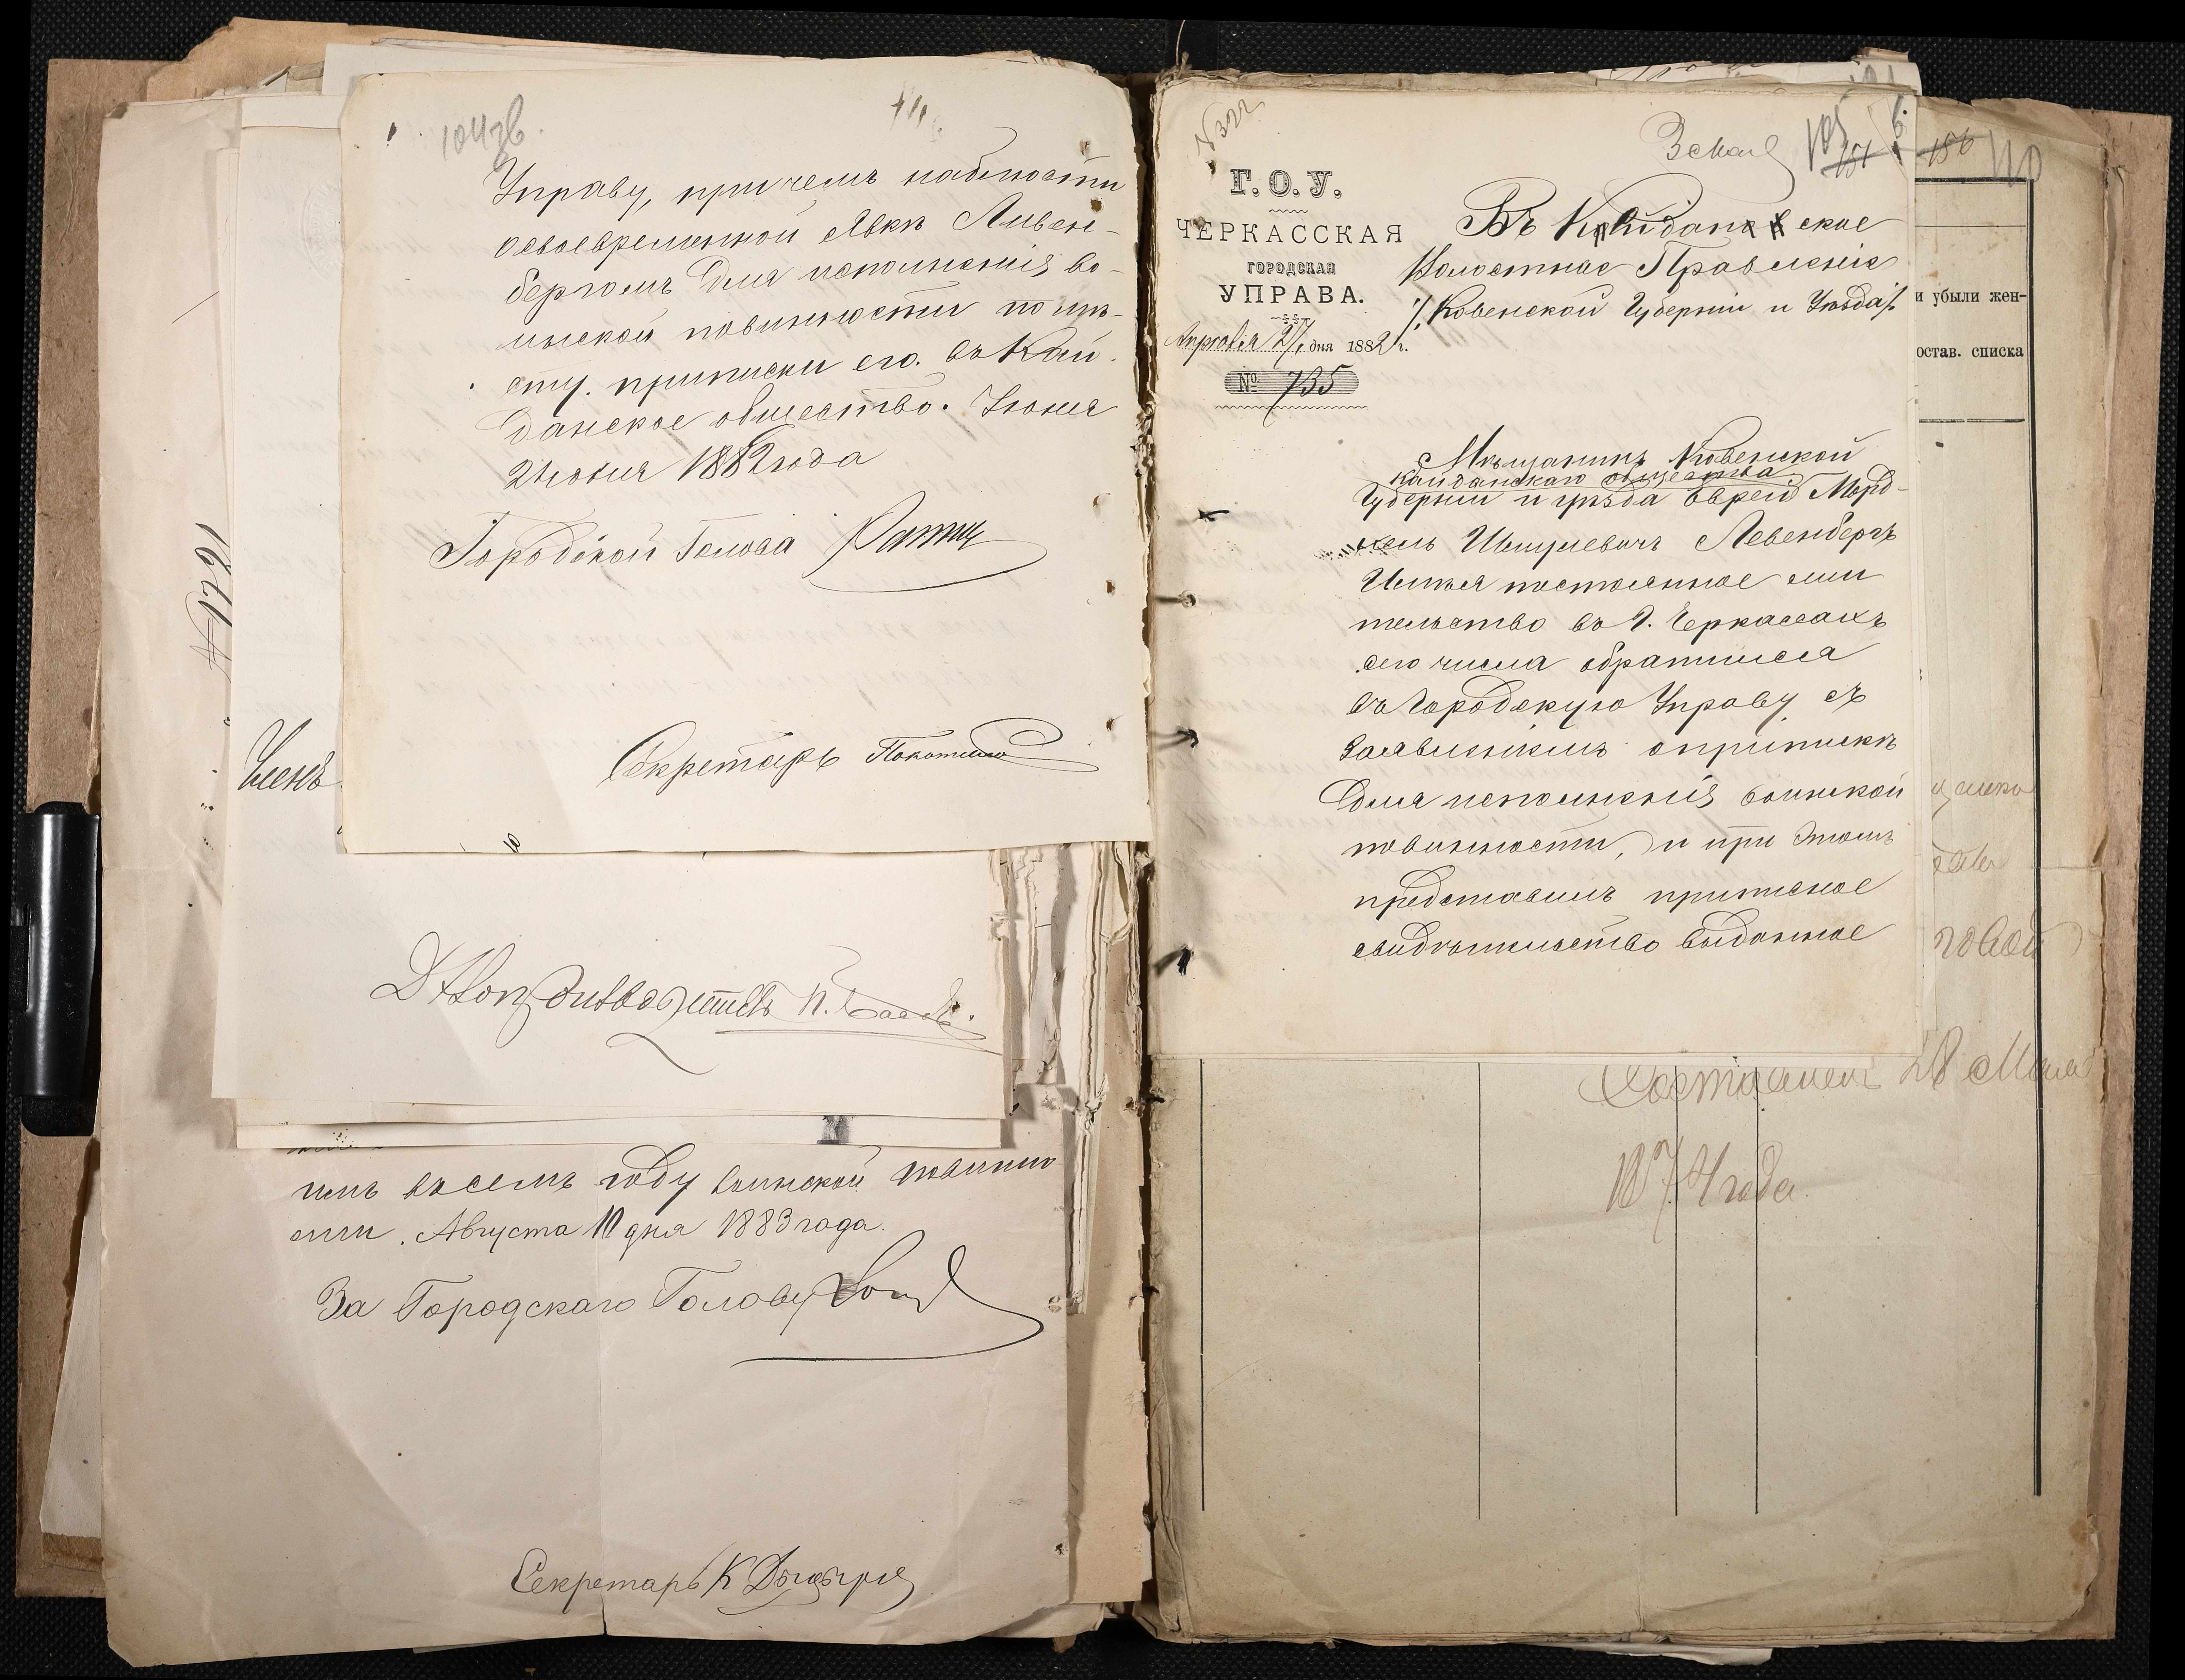 Управу, при чемъ наблюсти
освоевременной явкѣ Ливен-
бергомъ для исполненія во-
инской повинности по мѣ-
сту. приписки его. въ Кай-
данское общество. Іюня
2 Іюня 1882 года
Городской Голова
Секретарь
№ 1791
Членъ
имъ въ семъ году воинской повинно
сти. Августа 10 дня 1883 года.
За Городскаго Голову
Секретарь К
№ 322
105
151
156
110
Г. О. У.
ЧЕРКАССКАЯ
ГОРОДСКАЯ
УПРАВА.
Апрѣля 27 дня 1882 г.
№ 735
Въ Кайданское
Волостное Правленіе
Ковенской Губерніи и Уѣзда
Мѣщанинъ Ковенской
Кайданскаго общества
Губерніи и уѣзда Еврей Морд-
хель Шмулевичъ Левенбергъ
Имѣя постоянное жи
тельство въ Г. Черкассахъ
сего числа обратился
въ Городскую Управу съ
заявленіемъ о припискѣ
для исполненія воинской
повинности, и при этомъ
представилъ приписное
свидѣтельство выданное
и убыли жен-
остав. списка
Составленъ 28 Мая
1874 года.